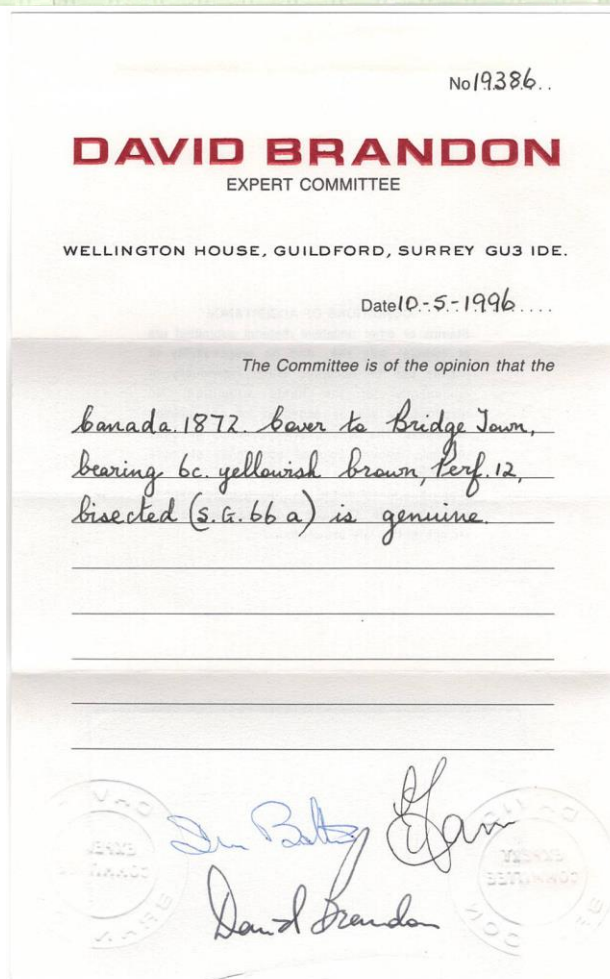 No 19386..
DAVID BRANDON
EXPERT COMMITTEE
WELLINGTON HOUSE, GUILDFORD, SURREY GU3 IDE.
Date 10-5-1996....
The Committee is of the opinion that the
Canada. 1872. Cover to Bridge Town,
bearing 6c. yellowish brown, Perf. 12,
bisected (S.G. 66 a) is genuine.
David Brandon
DAVID BRANDON
EXPERT
COMMITTEE